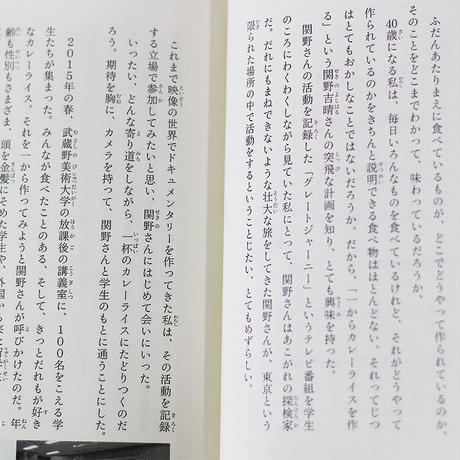 ふだんあたりまえに食べているものが、どこでどうやって作られているのか。
そのことをどこまでわかって、味わっているだろうか。
40歳になる私は、毎日いろんなものを食べているけれど、それがどうやって
作られているのかをきちんと説明できる食べ物はほとんどない。それってじつ
はとてもおかしなことではないだろうか。だから、「一からカレーライスを作
る」という関野吉晴さんの突飛な計画を知り、とても興味を持った。
関野さんの活動を記録した「グレートジャーニー」というテレビ番組を学生
のころにわくわくしながら見ていた私にとって、関野さんはあこがれの探検家
だ。だれにもまねできないような壮大な旅をしてきた関野さんが、東京という
限られた場所の中で活動をするということじたい、とてもめずらしい。
これまで映像の世界でドキュメンタリーを作ってきた私は、その活動を記録
する立場で参加してみたいと思い、関野さんにはじめて会いにいった。
いったい、どんな寄り道をしながら、一杯のカレーライスにたどりつくのだ
ろう。期待を胸に、カメラを持って、関野さんと学生のもとに通うことにした。
2015年の春、武蔵野美術大学の放課後の講義室に、100名をこえる学
生たちが集まった。みんなが食べたことのある、そして、きっとだれもが好き
なカレーライス。それを一から作ってみようと関野さんが呼びかけたのだ。年
齢も性別もさまざま、頭を金髪にそめた学生や、外国から来た留学生